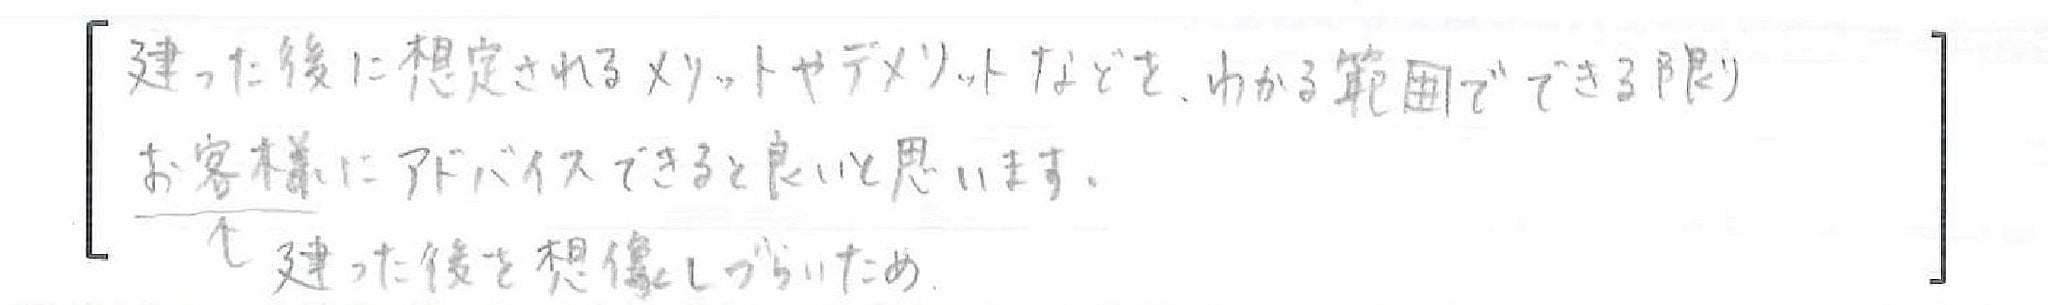 建った後に想定されるメリットやデメリットなどを、わかる範囲でできる限り
お客様にアドバイスできると良いと思います。
↑ 建った後を想像しづらいため.